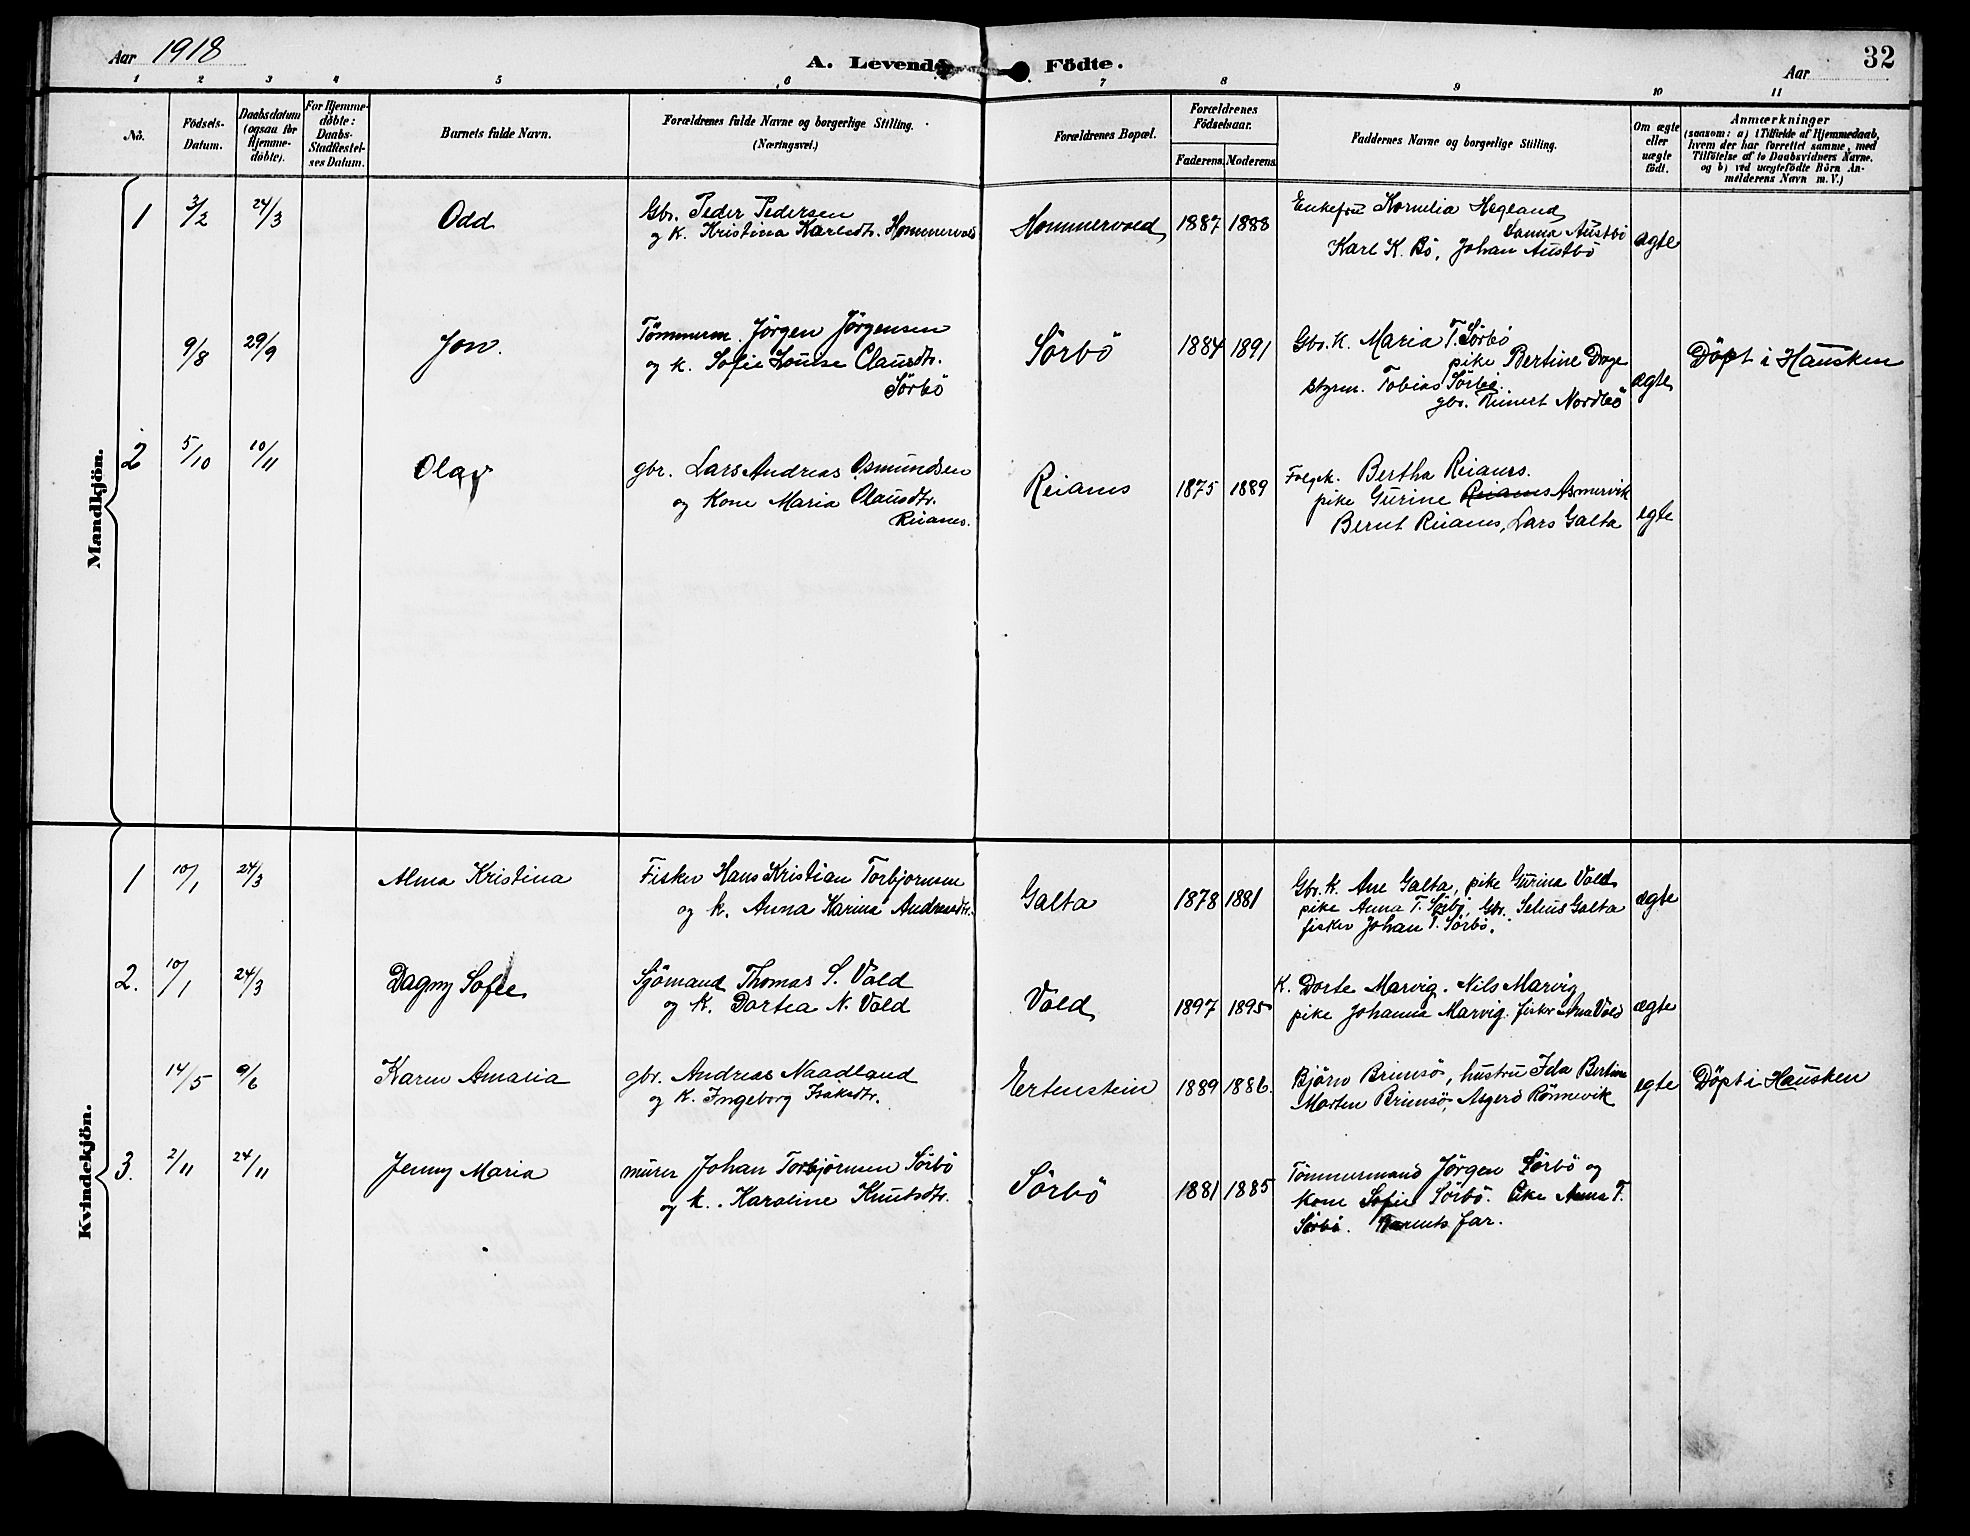 Aar 1918
A. Levende Födte.
Aar
32
1 2 3 4 5 6 7 8 9 10 11
No.
Födsels-Datum.
Daabsdatum (ogsaa for Hjemme-döbte).
For Hjemme-döbte: Daabs-Stadfestel-ses Datum.
Barnets fulde Navn.
Forældrenes fulde Navne og borgerlige Stilling.
(Næringsvei.)
Forældrenes Bopæl.
Forældrenes Födselsaar.
Faderens. Moderens.
Faddernes Navne og borgerlige Stilling.
Om ægte eller uægte födt.
Anmærkninger
(saasom: a) i Tilfælde af Hjemmedaab,
hvem der har forrettet samme, med
Tilföielse af to Daabsvidners Navne.
og b) ved uægtefödte Börn An-
melderens Navn m. V.)
Mandkjön.
1 3/2 24/3 Odd
Gbr. Peder Pedersen
og K. Kristina Karlsdtr. Hommervold
Hommervold 1887 1888
Enkefru Kornelia Hegland
Sanna Austbö
Karl K. Bö, Johan Austbö
ægte
9/8 29/9 Jon.
Tömmerm. Jörgen Jörgensen
og k. Sofie Louise Clausdtr.
Sörbö
Sörbö 1884 1891
Gbr. K. Maria T. Sörbö
pike Bertine Dage
Styrm. Tobias Sörbö.
gbr. Reinert Nordbö
ægte
Döpt i Hausken
2 5/10 10/11 Olav
gbr. Lars Andreas Osmundsen
og Kone Maria Olausdtr.
Reianes.
Reianes 1875 1889
Folgek. Bertha Reianes.
pike Gurine Reianes Asmervik
Bernt Reianes, Lars Galta
egte
Kvindekjön.
1 10/1 24/3 Alma Kristina
Fisker Hans Kristian Torbjornsen
og k. Anna Karina Andreasdtr.
Galta 1878 1881
Gbr. K. Ane Galta, pike Gurina Vold
pike Anna T. Sörbö, Gbr. Selius Galta
fisker Johan T. Sörbö.
ægte
2. 10/1 24/3 Dagny Sofie
Sjömand Thomas S. Vold
og K. Dortea N. Vold
Vold 1897 1895
K. Dorte Marvig. Nils Marvig
pike Johanna Marvig. fisker Vold
ægte
14/5 9/6 Karen Amalia
gbr. Andreas Naadland
og K. Ingeborg Isaksdtr.
Ertenstein 1889 1886.
Björn Brimsö, hustru Ida Bertine
Marten Brimsö, Asgerd Rönnevik
egte
Döpt i Hausken
3. 2/11 24/11 Jenny Maria
murer Johan Torbjörnsen Sörbö
og k. Karoline Knutsdtr.
Sörbö 1881 1885
Tömmermand Jörgen Sörbö og
kone Sofie Sörbö. Pike Anna T.
Sörbö. Barnets far.